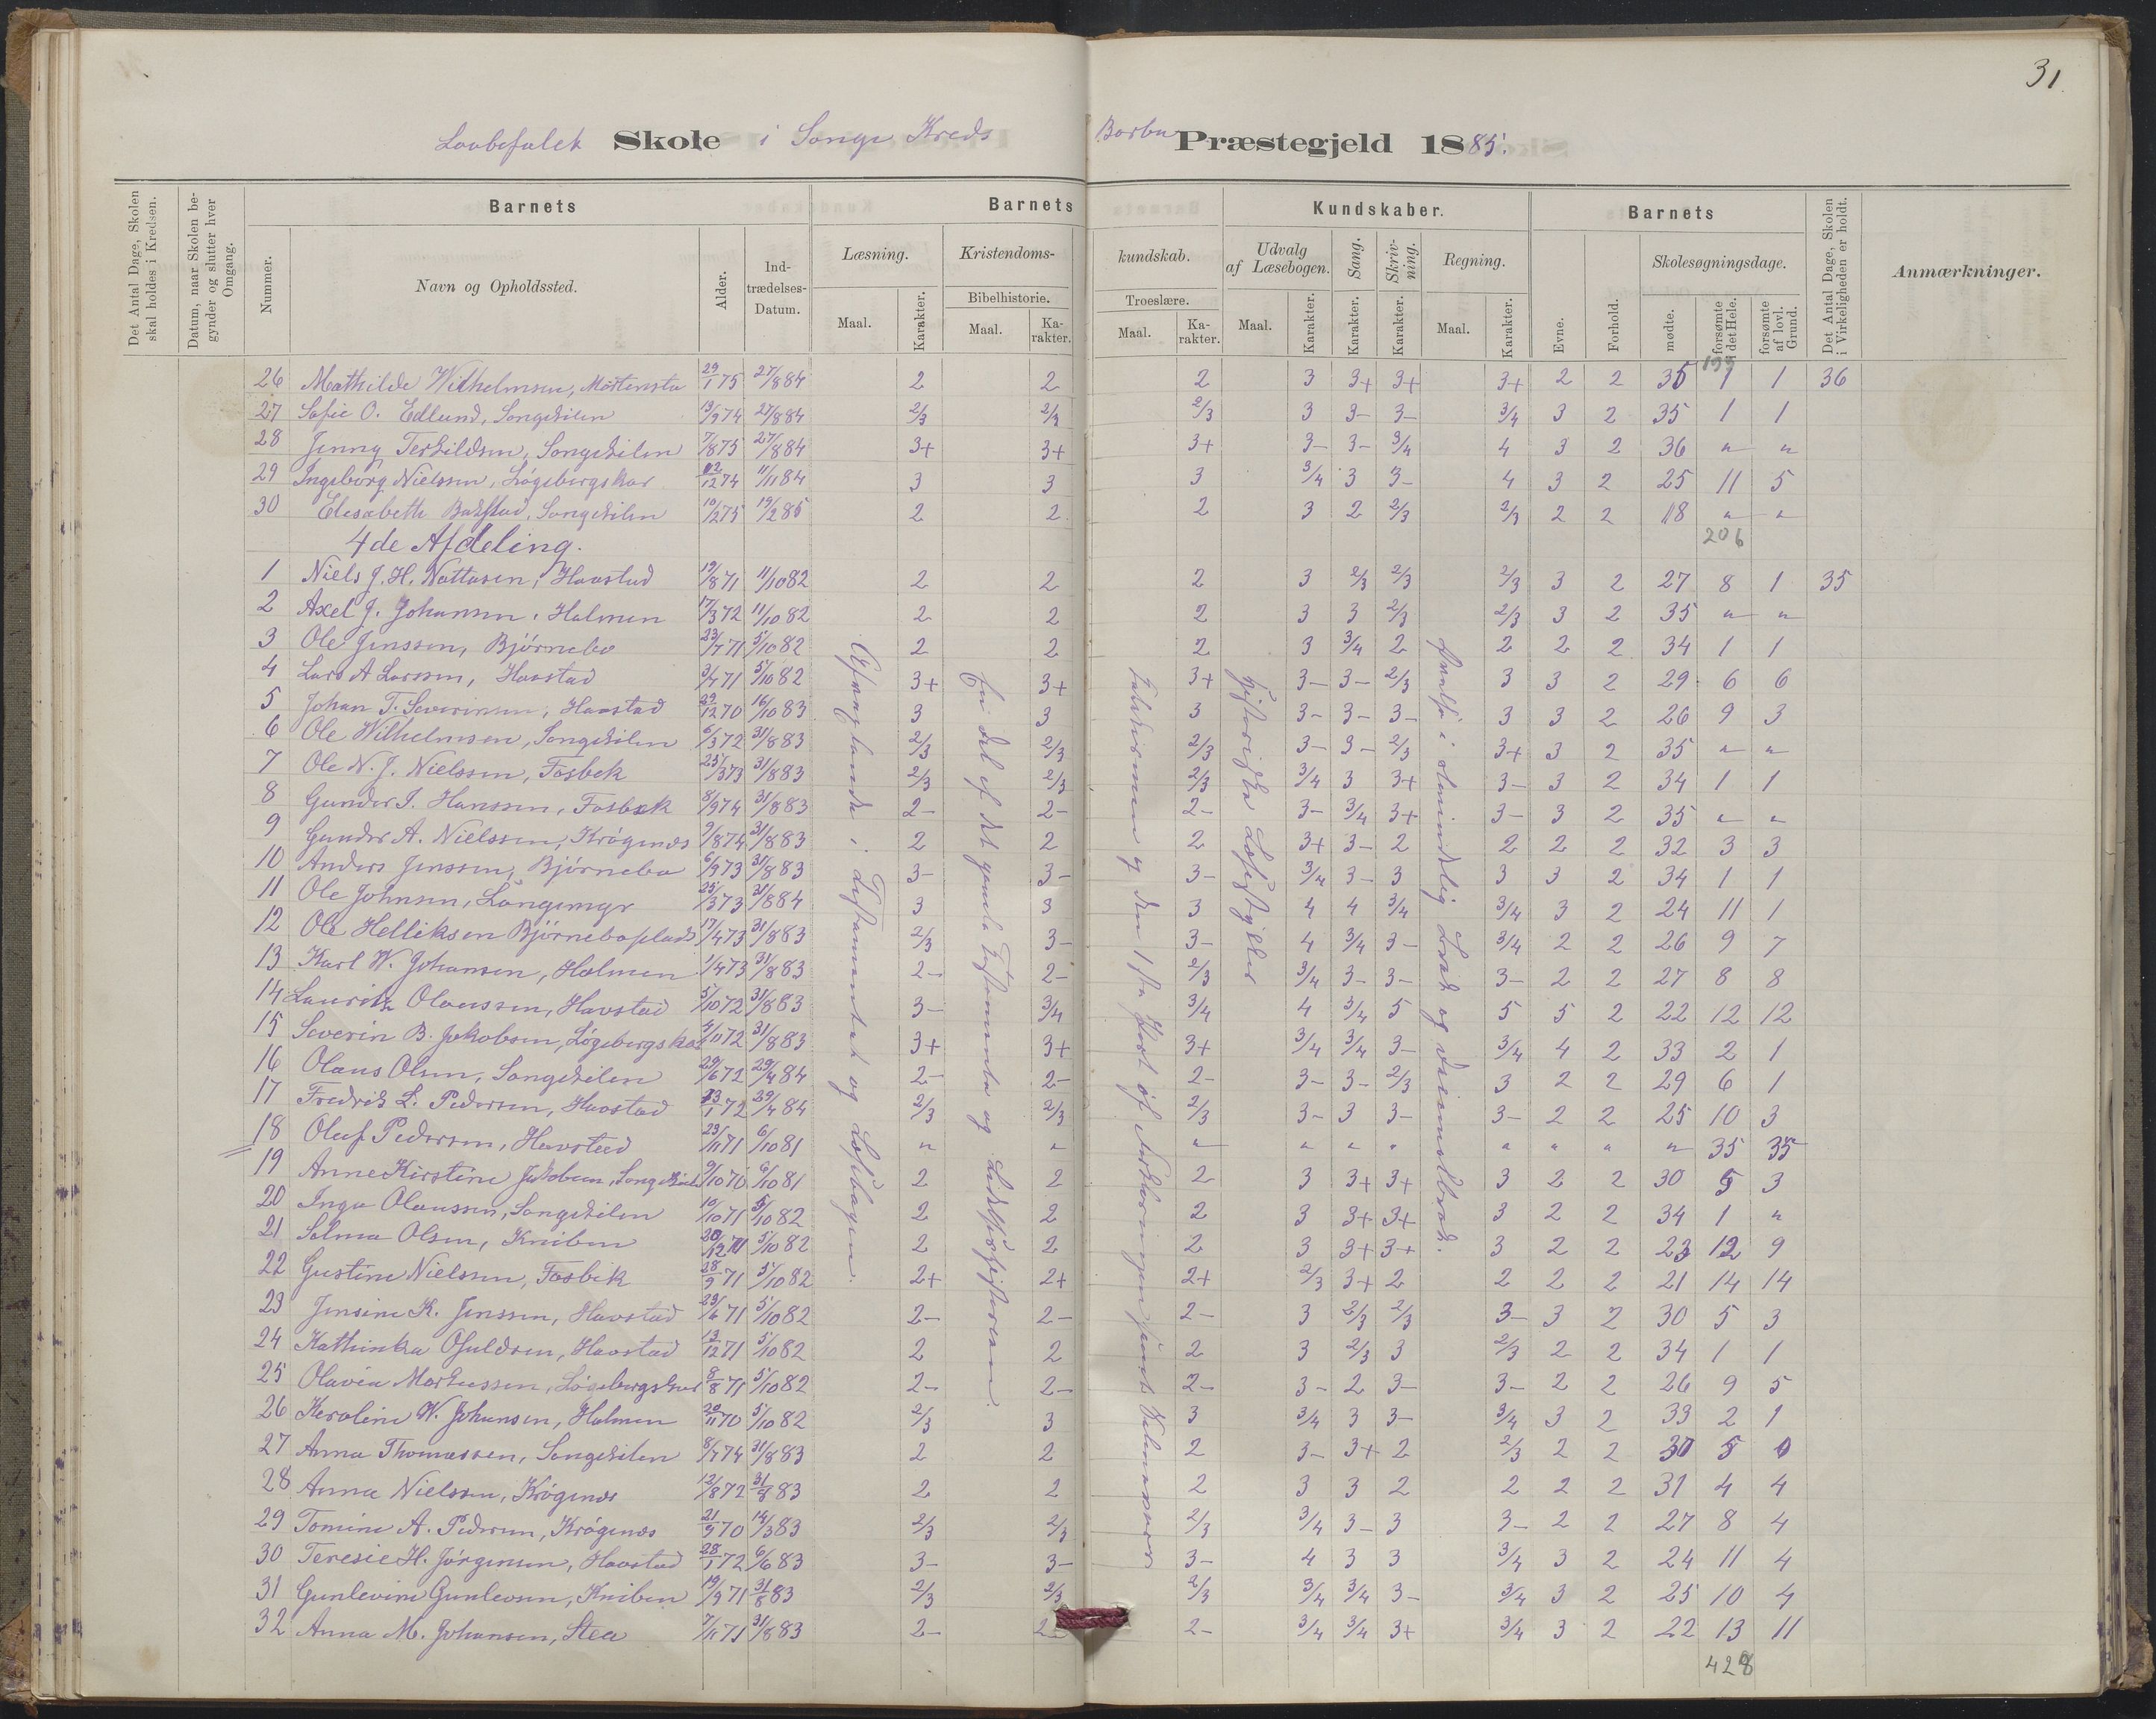 31
Skole i Songe Kreds Barbu Præstegjeld 1885.
Det Antal Dage, Skolen skal holdes i Kredsen.
Datum, naar Skolen begynder og slutter hver Omgang.
Barnets
Nummer.
Navn og Opholdssted.
Alder.
Ind-trædelses-Datum.
Barnets Kundskaber.
Læsning.
Maal.
Karakter.
Kristendoms-kundskab.
Bibelhistorie.
Maal.
Ka-rakter.
Troeslære.
Maal.
Ka-rakter.
Udvalg af Læsebogen.
Maal.
Karakter.
Sang.
Karakter.
Skriv-ning.
Karakter.
Regning.
Maal.
Karakter.
Barnets
Evne.
Forhold.
Skolesøgningsdage.
mødte.
forsømte i det Hele.
forsømte af lovl. Grund.
Det Antal Dage, Skolen i Virkeligheden er holdt.
Anmærkninger.
199
26 Mathilde Wilhelmsen, 29/1 75 27/8 84 2 2 2 3 3+ 3+ 3+ 2 2 35 1 1 36
27 Sofie O. Edlund, Songekilen 19/9 74 27/8 84 2/3 2/3 2/3 3 3- 3- 3/4 3 2 35 1 1
28 Jenny Terkildsen, Songekilen 7/8 75 27/8 84 3+ 3+ 3+ 3- 3- 3/4 4 3 2 36 " "
29 Ingeborg Nielssen, Løgebergskar 12/12 74 11/11 84 3 3 3 3/4 3 3- 4 3 2 25 11 5
30 Elesabeth Songekilen 10/2 75 19/2 85 2 2 2 3 2 2/3 2/3 2 2 18 " "
4de Afdeling.
206
1 Niels J. H. Havstad 19/8 71 11/10 82 2 2 2 3 2/3 2/3 2/3 3 2 27 8 1 35
2 Axel J. Johansen, Holmen 17/3 72 11/10 82 2 2 2 3 3 2/3 2/3 3 2 35 " "
3 Ole Jenssen, Bjørnebo 23/7 71 5/10 82 2 2 2 3 3/4 2 2 2 2 34 1 1
4 Lars A Larssen, Havstad 3/4 71 5/10 82 3+ 3+ 3+ 3- 3- 2/3 3 3 2 29 6 6
5 Johan T. Severinsen, Havstad 22/12 70 16/10 83 3 3 3 3- 3- 3- 3 3 2 26 9 3
6 Ole Wilhelmsen, Songekilen 6/3 72 31/8 83 2/3 2/3 2/3 3- 3- 2/3 3+ 3 2 35 " "
7 Ole N. J. Nielssen, Fosbek 25/3 73 31/8 83 2/3 2/3 2/3 3/4 3 3+ 3- 3 2 34 1 1
8 Gunder I. Hanssen, Fosbek 8/9 74 31/8 83 2- 2- 2- 3- 3/4 3+ 3- 3 2 35 " "
9 Gunder A. Nielssen, Krøgenæs 9/8 74 31/8 83 2 2 2 3+ 3- 2 2 2 2 32 3 3
10 Anders Jenssen, Bjørnebo 6/9 73 31/8 83 3- 3- 3- 3/4 3- 3 3 3 2 34 1 1
11 Ole Johnsen, Langemyr 25/3 73 31/8 84 3 3 3 4 4 3/4 3/4 3 2 24 11 1
12 Ole Helliksen Bjørneboplads 17/4 73 31/8 83 2/3 3- 3- 4 3/4 3- 3/4 2 2 26 9 7
13 Karl W. Johansen, Holmen 1/4 73 31/8 83 2- 2- 2/3 3/4 3- 3- 3- 2 2 27 8 8
14 Lauritz Olaussen, Havstad 5/10 72 31/8 83 3- 3/4 3/4 4 3/4 5 5 5 2 22 12 12
15 Severin B. Jakobsen, Løgebergskar 4/10 72 31/8 83 3+ 3+ 3+ 3/4 3/4 3- 3/4 4 2 33 2 1
16 Olaus Olsen, Songekilen 29/6 72 29/4 84 2- 2- 2- 3- 3- 2/3 3 2 2 29 6 1
17 Fredrik L. Pedersen, Havstad 23/1 72 29/4 84 2/3 2/3 2/3 3- 3 3- 3- 2 2 25 10 3
18 Oluf Pedersen, Havstad 23/11 71 6/10 81 " " " " " " " " " " 35 35
19 Anne Kirstine Jakobsen, Songekilen 9/10 70 6/10 81 2 2 2 3 3+ 3+ 3 2 2 30 5 3
20 Inga Olaussen, Songekilen 10/10 71 5/10 82 2 2 2 3 3+ 3+ 3 2 2 34 1 "
21 Selma Olsen, Kniben 20/12 71 5/10 82 2 2 2 3 3+ 3+ 3 2 2 23 12 9
22 Gustine Nielssen, Fosbek 28/9 71 5/10 82 2+ 2+ 2+ 2/3 3+ 2 2 2 2 21 14 14
23 Jensine K. Jenssen, Havstad 23/6 71 5/10 82 2- 2- 2- 3 2/3 2/3 3- 3 2 30 5 3
24 Kathinka Osuldsen, Havstad 13/12 71 5/10 82 2 2 2 3 2/3 3 2/3 2 2 34 1 1
25 Olavia Markussen, Løgebergskar 8/8 71 5/10 82 2- 2- 2- 3- 2 3- 3- 2 2 26 9 5
26 Keroline W. Johansen, Holmen 20/11 70 5/10 82 2/3 3 3 3/4 3 3- 3/4 3 2 33 2 1
27 Anna Thomassen, Songekilen 8/7 74 31/8 83 2 2 2 3- 3+ 2 2/3 2 2 30 5 0
28 Anna Nielssen, Krøgenæs 12/8 72 31/8 83 2 2 2 3 3 2 2 2 2 31 4 4
29 Tomine A. Pedersen, Krøgenæs 21/9 70 14/3 83 2/3 2/3 2/3 3/4 3- 3 3- 2 2 27 8 4
30 Teresie H. Jørgensen, Havstad 28/1 72 6/6 83 3- 3- 3- 4 3 3 3/4 3 2 24 11 4
31 Gunlevine Gunlevsen, Kniben 19/9 71 31/8 83 2/3 2/3 2/3 3/4 3/4 3- 3/4 3 2 25 10 4
32 Anna M. Johansen, Stea 7/11 71 31/8 83 2- 2- 2- 3/4 3/4 3+ 3/4 3 2 22 13 11
428
i Testamentet og Læsebogen.
En del af det gamle Testamente og
Katekismen og den 1ste Part af Forklaringen samt Salmevers
Historiske Læsestykker
i almindelig Brøk og Decimalbrøk.